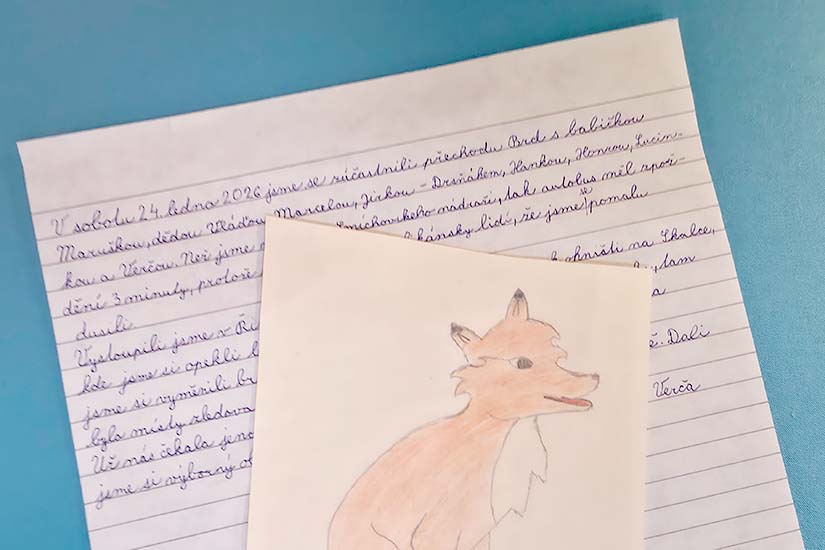 V sobotu 24. ledna 2026 jsme se zúčastnili přechodu Brd s babičkou
Maruškou, dědou Vláďou, Marcelou, Jirkou - Drsňákem, Hankou, Honzou, Lucin-
kou a Verčou. Než jsme míchovského nádraží, tak autobus měl zpož-
dění 3 minuty, protože kánsky lidí, že jsme se pomalu
dusili.
Vystoupili jsme v Ři k ohništi na Skalce,
kde jsme si opekli tam
jsme si vyměnili br a
byla místy zledova ě. Dali
Už nás čekala jeno
jsme si výborný ob Verča